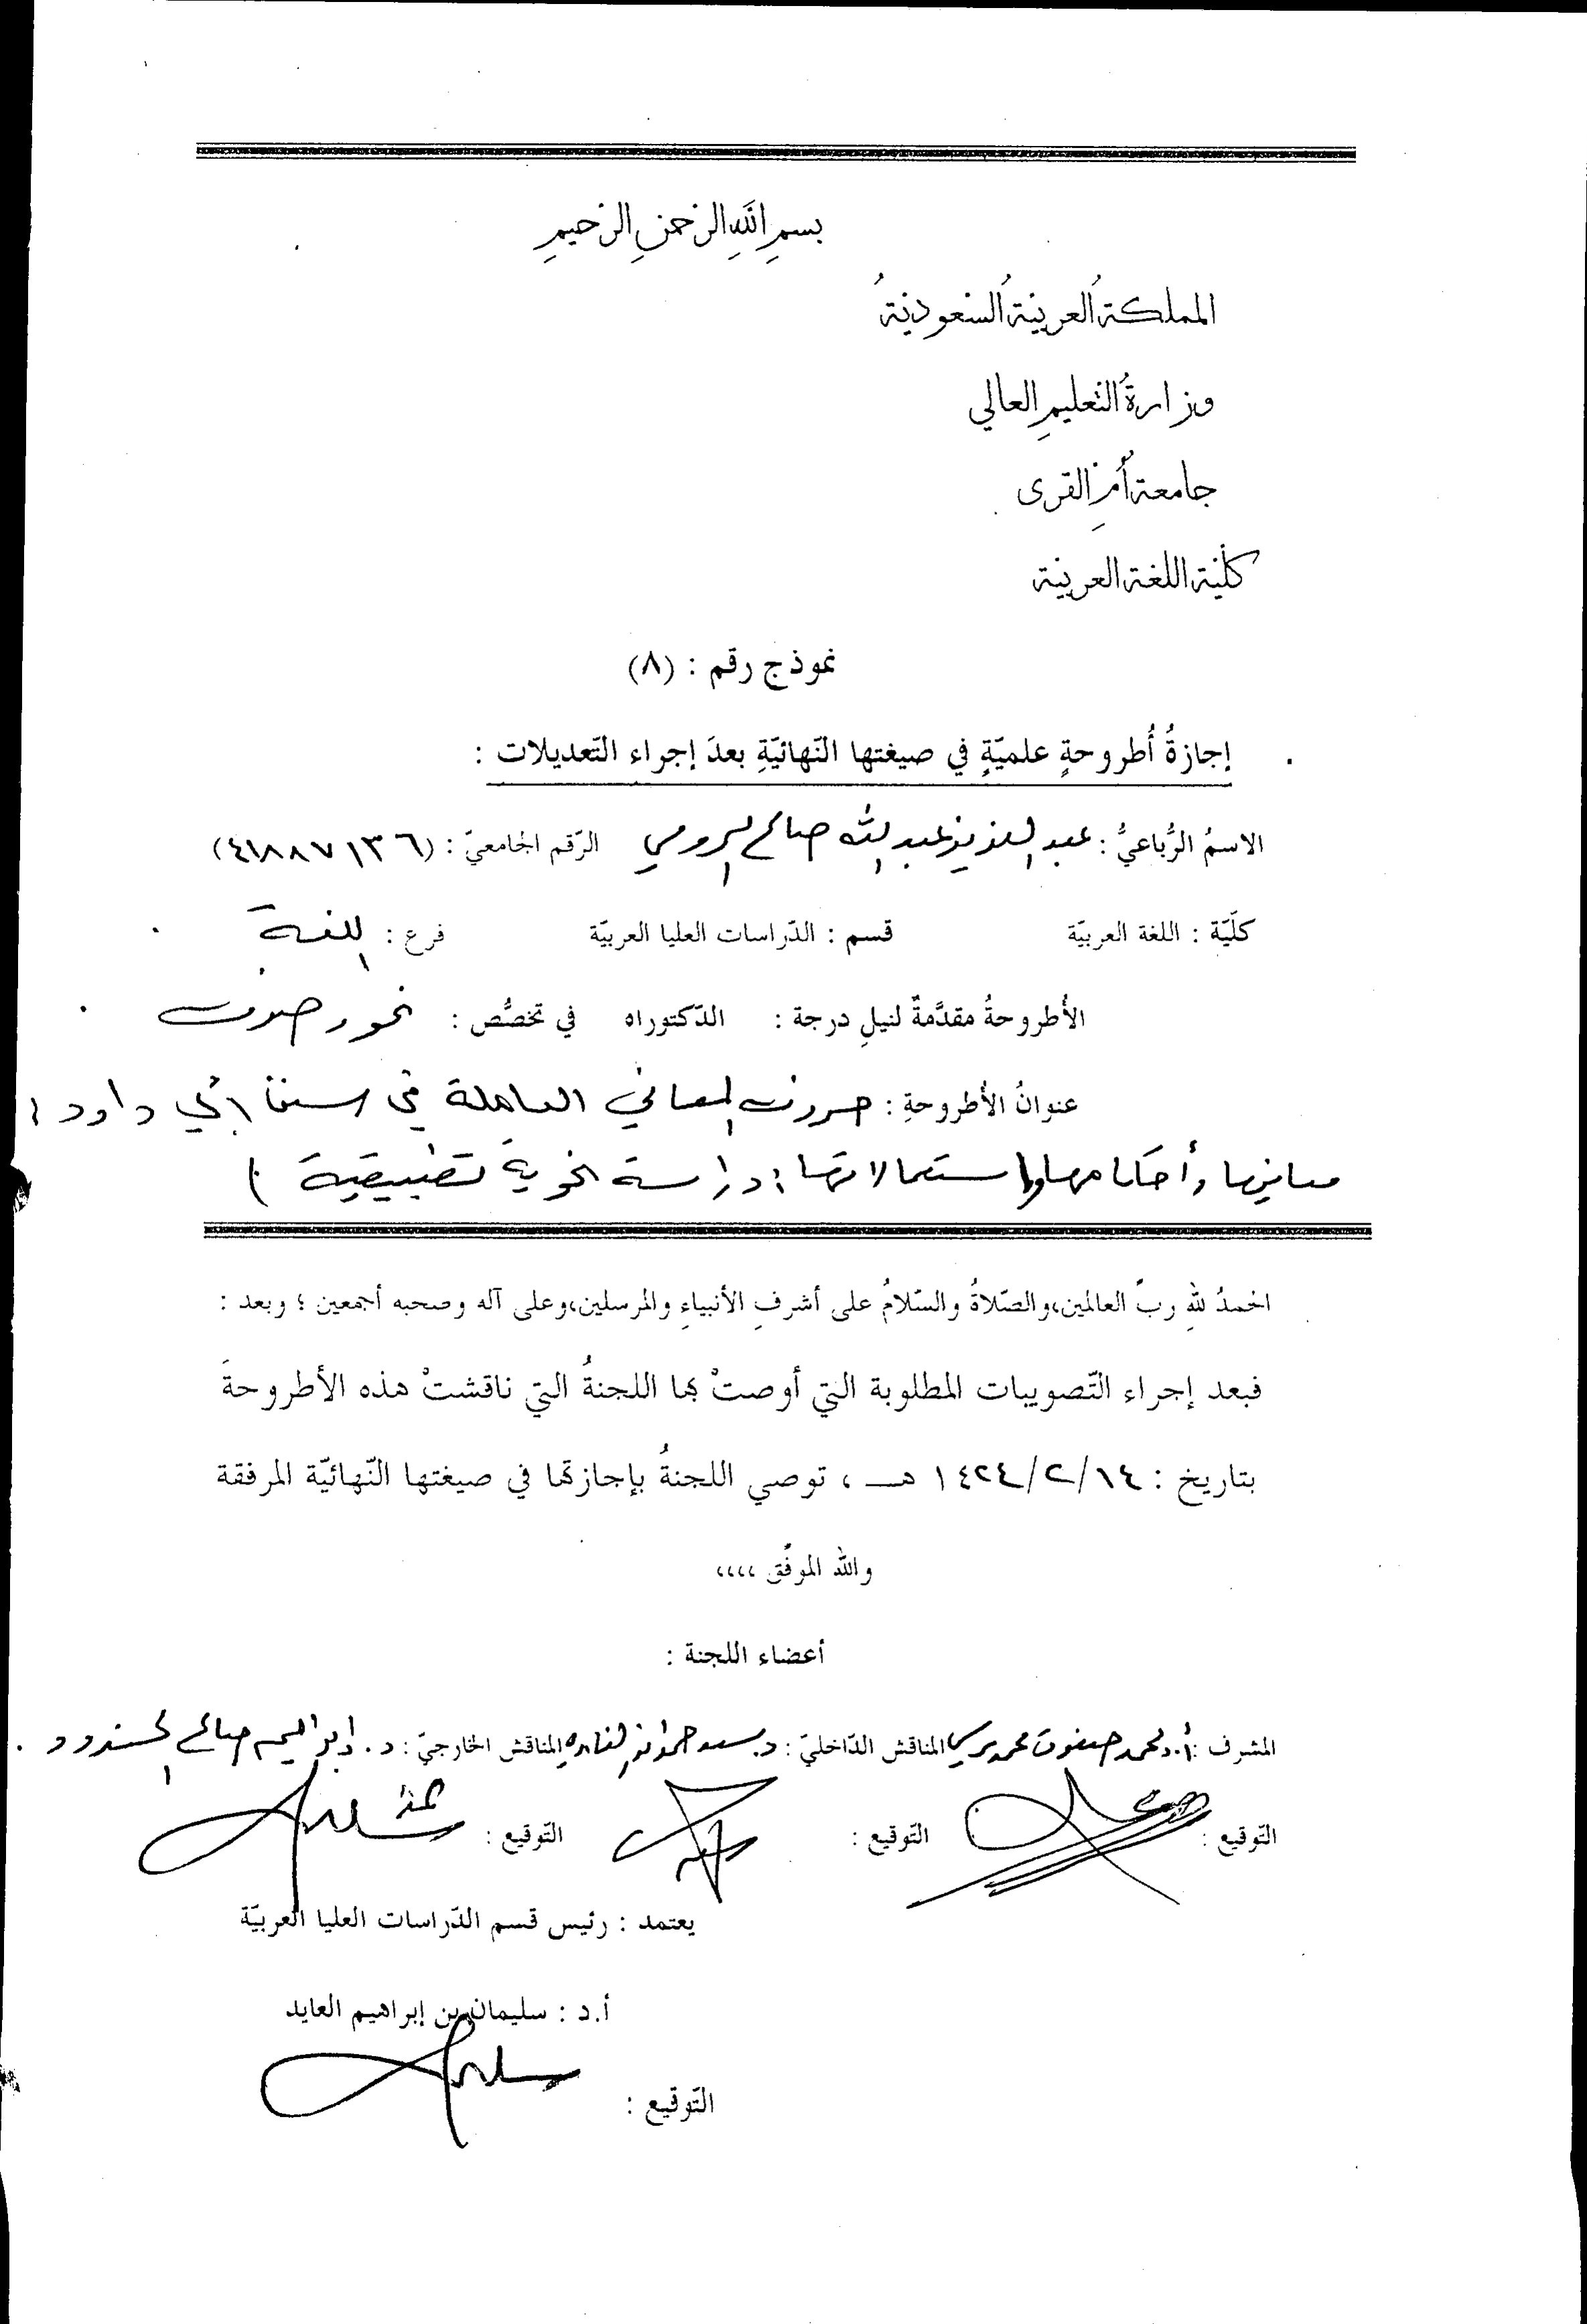 بسمِ اللَّهِ الرَّحمنِ الرَّحيمِ
المملكةُ العربيَّةُ السَّعوديَّةُ
وزارةُ التَّعليمِ العالي
جامعةُ أمِّ القرى
كلّيّة اللغة العربيّة
نموذج رقم : (٨)
إجازةُ أُطروحةٍ علميّةٍ في صيغتها النّهائيّةِ بعدَ إجراء التّعديلات :
الاسمُ الرُّباعيُّ : عبد العزيز عبد الله صالح الرومي الرّقم الجامعيّ : (٤١٨٨٧١٣٦)
كلّيّة : اللغة العربيّة قسم : الدّراسات العليا العربيّة فرع : اللغة
الأُطروحةُ مقدَّمةٌ لنيلِ درجة : الدّكتوراه في تخصُّص : نحو وصرف
عنوانُ الأُطروحةِ : حروف المعاني العاملة في سنن أبي داود :
معانيها وأحكامها واستعمالاتها : دراسة نحوية تطبيقية
الحمدُ للهِ ربِّ العالمين،والصّلاةُ والسّلامُ على أشرفِ الأنبياءِ والمرسلين،وعلى آله وصحبه أجمعين ؛ وبعد :
فبعد إجراء التّصويبات المطلوبة التي أوصتْ بها اللجنةُ التي ناقشتْ هذه الأطروحةَ
بتاريخ : ١٤٢٤/٢/١٤ هـ ، توصي اللجنةُ بإجازتها في صيغتها النّهائيّة المرفقة
والله الموفّق ،،،،
أعضاء اللجنة :
المشرف : أ.د محمد صفوت محمد مرسي المناقش الدّاخليّ : د. سعد حمدان الغامدي المناقش الخارجيّ : د. إبراهيم صالح الحندود .
التّوقيع : التّوقيع : التّوقيع :
يعتمد : رئيس قسم الدّراسات العليا العربيّة
أ.د : سليمان بن إبراهيم العايد
التّوقيع :